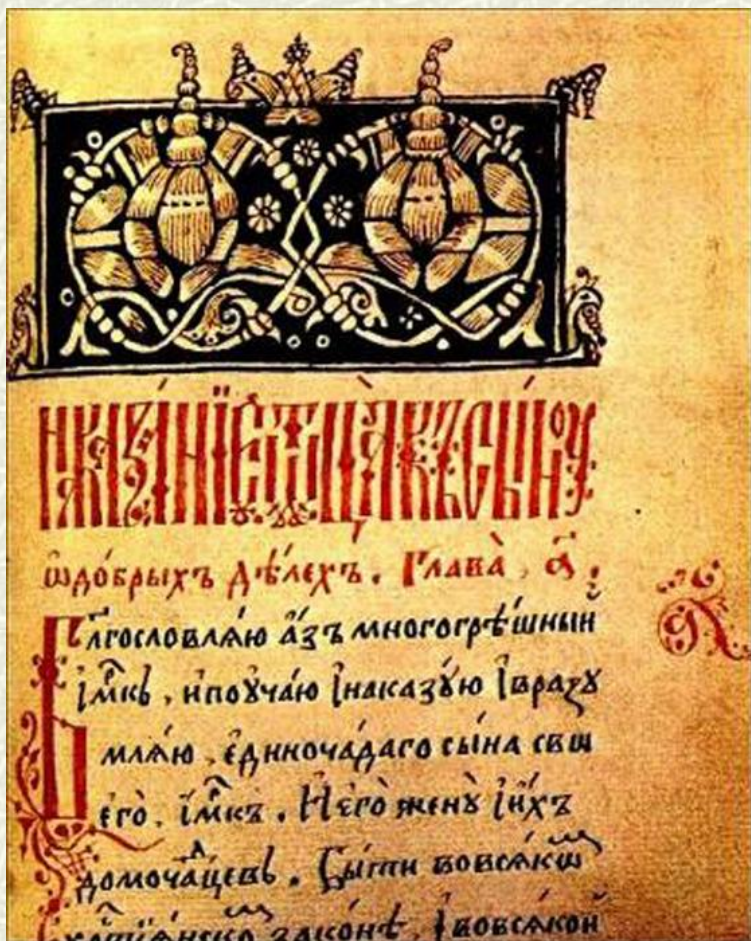 наказа́нїе ѿца̀ къ сы́нꙋ
ѡ до́брыхъ дѣ́лехъ. глава̀, а҃.
Бл҃гословлѧ́ю а҆́зъ многогрѣ́шныи
і҆м҃къ, и поꙋча́ю і҆наказꙋ́ю і҆вразꙋ
млѧ́ю, е҆диночѧ́даго сы́на сво
его̀, і҆м҃къ. И҆ его̀ женꙋ̀ і҆и́хъ
домоча́дцевъ. Быти вовсѧ́кѡ
христиѧ́нско законѣ, І҆вовсѧ́кои
а҃